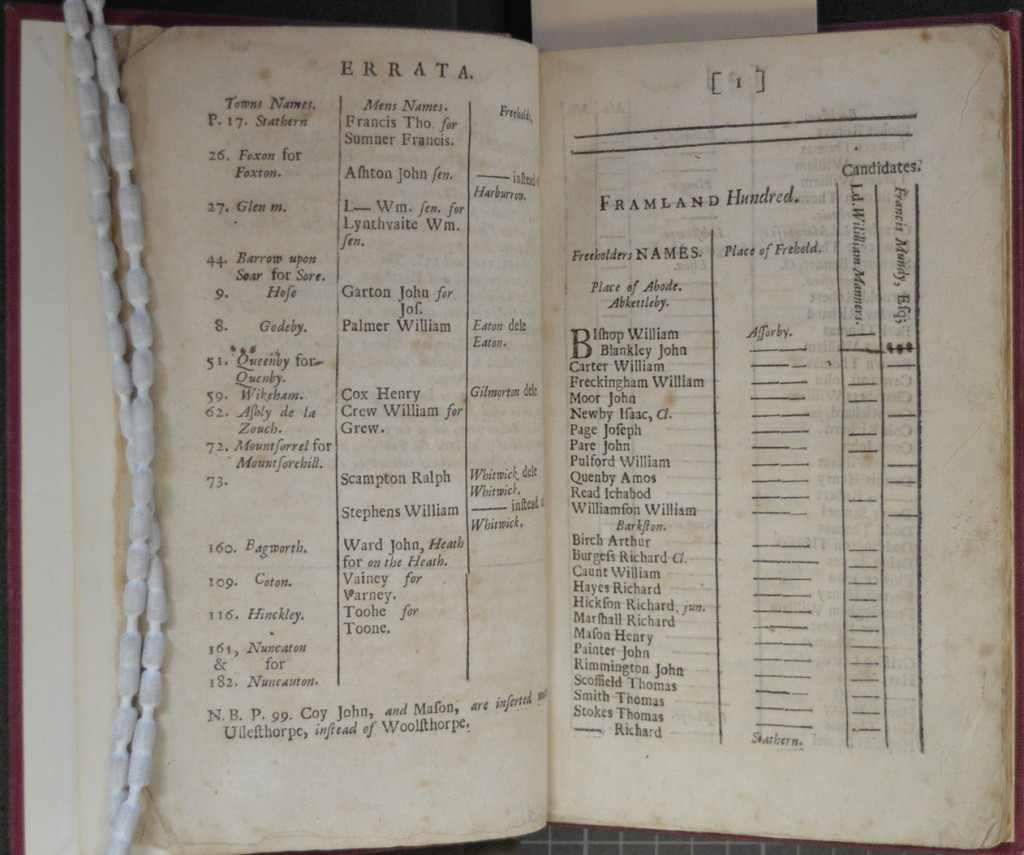 ERRATA.
Towns Names. Mens Names. Freeholds.
P. 17. Stathern Francis Tho. for
Sumner Francis.
26. Foxon for
Foxton. Aſhton John ſen. —— inſtead
Harburrow.
27. Glen m. L— Wm. ſen. for
Lynthvaite Wm.
ſen.
44. Barrow upon
Soar for Sore.
9. Hoſe Garton John for
Joſ.
8. Godeby. Palmer William Eaton dele
Eaton.
51. Queenby for
Quenby.
59. Wikeham. Cox Henry Gilmorton dele
62. Aſhly de la Crew William for
Zouch. Grew.
72. Mountſorrel for
Mountſorehill.
73. Scampton Ralph Whitwick dele
Whitwick.
Stephens William —— inſtead
Whitwick.
160. Bagworth. Ward John, Heath
for on the Heath.
109. Coton. Vainey for
Varney.
116. Hinckley. Toohe for
Toone.
161, Nuncaton
& for
182. Nuneauton.
N. B. P. 99. Coy John, and Maſon, are inſerted
Ulleſthorpe, inſtead of Woolſthorpe.
[ 1 ]
Candidates.
FRAMLAND Hundred.
Ld. Willliam Manners.
Francis Mundy, Eſq;
Freeholders NAMES. Place of Frehold.
Place of Abode.
Abkettleby.
BIſhop William Aſſorby.
Blankley John ——
Carter William ——
Freckingham William ——
Moor John ——
Newby Iſaac, Cl. ——
Page Joſeph ——
Pare John ——
Pulford William ——
Quenby Amos ——
Read Ichabod ——
Williamſon William ——
Barkſton.
Birch Arthur ——
Burgeſs Richard Cl. ——
Caunt William ——
Hayes Richard ——
Hickſon Richard, jun. ——
Marſhall Richard ——
Maſon Henry ——
Painter John ——
Rimmington John ——
Scoffield Thomas ——
Smith Thomas ——
Stokes Thomas ——
——, Richard Stathern.